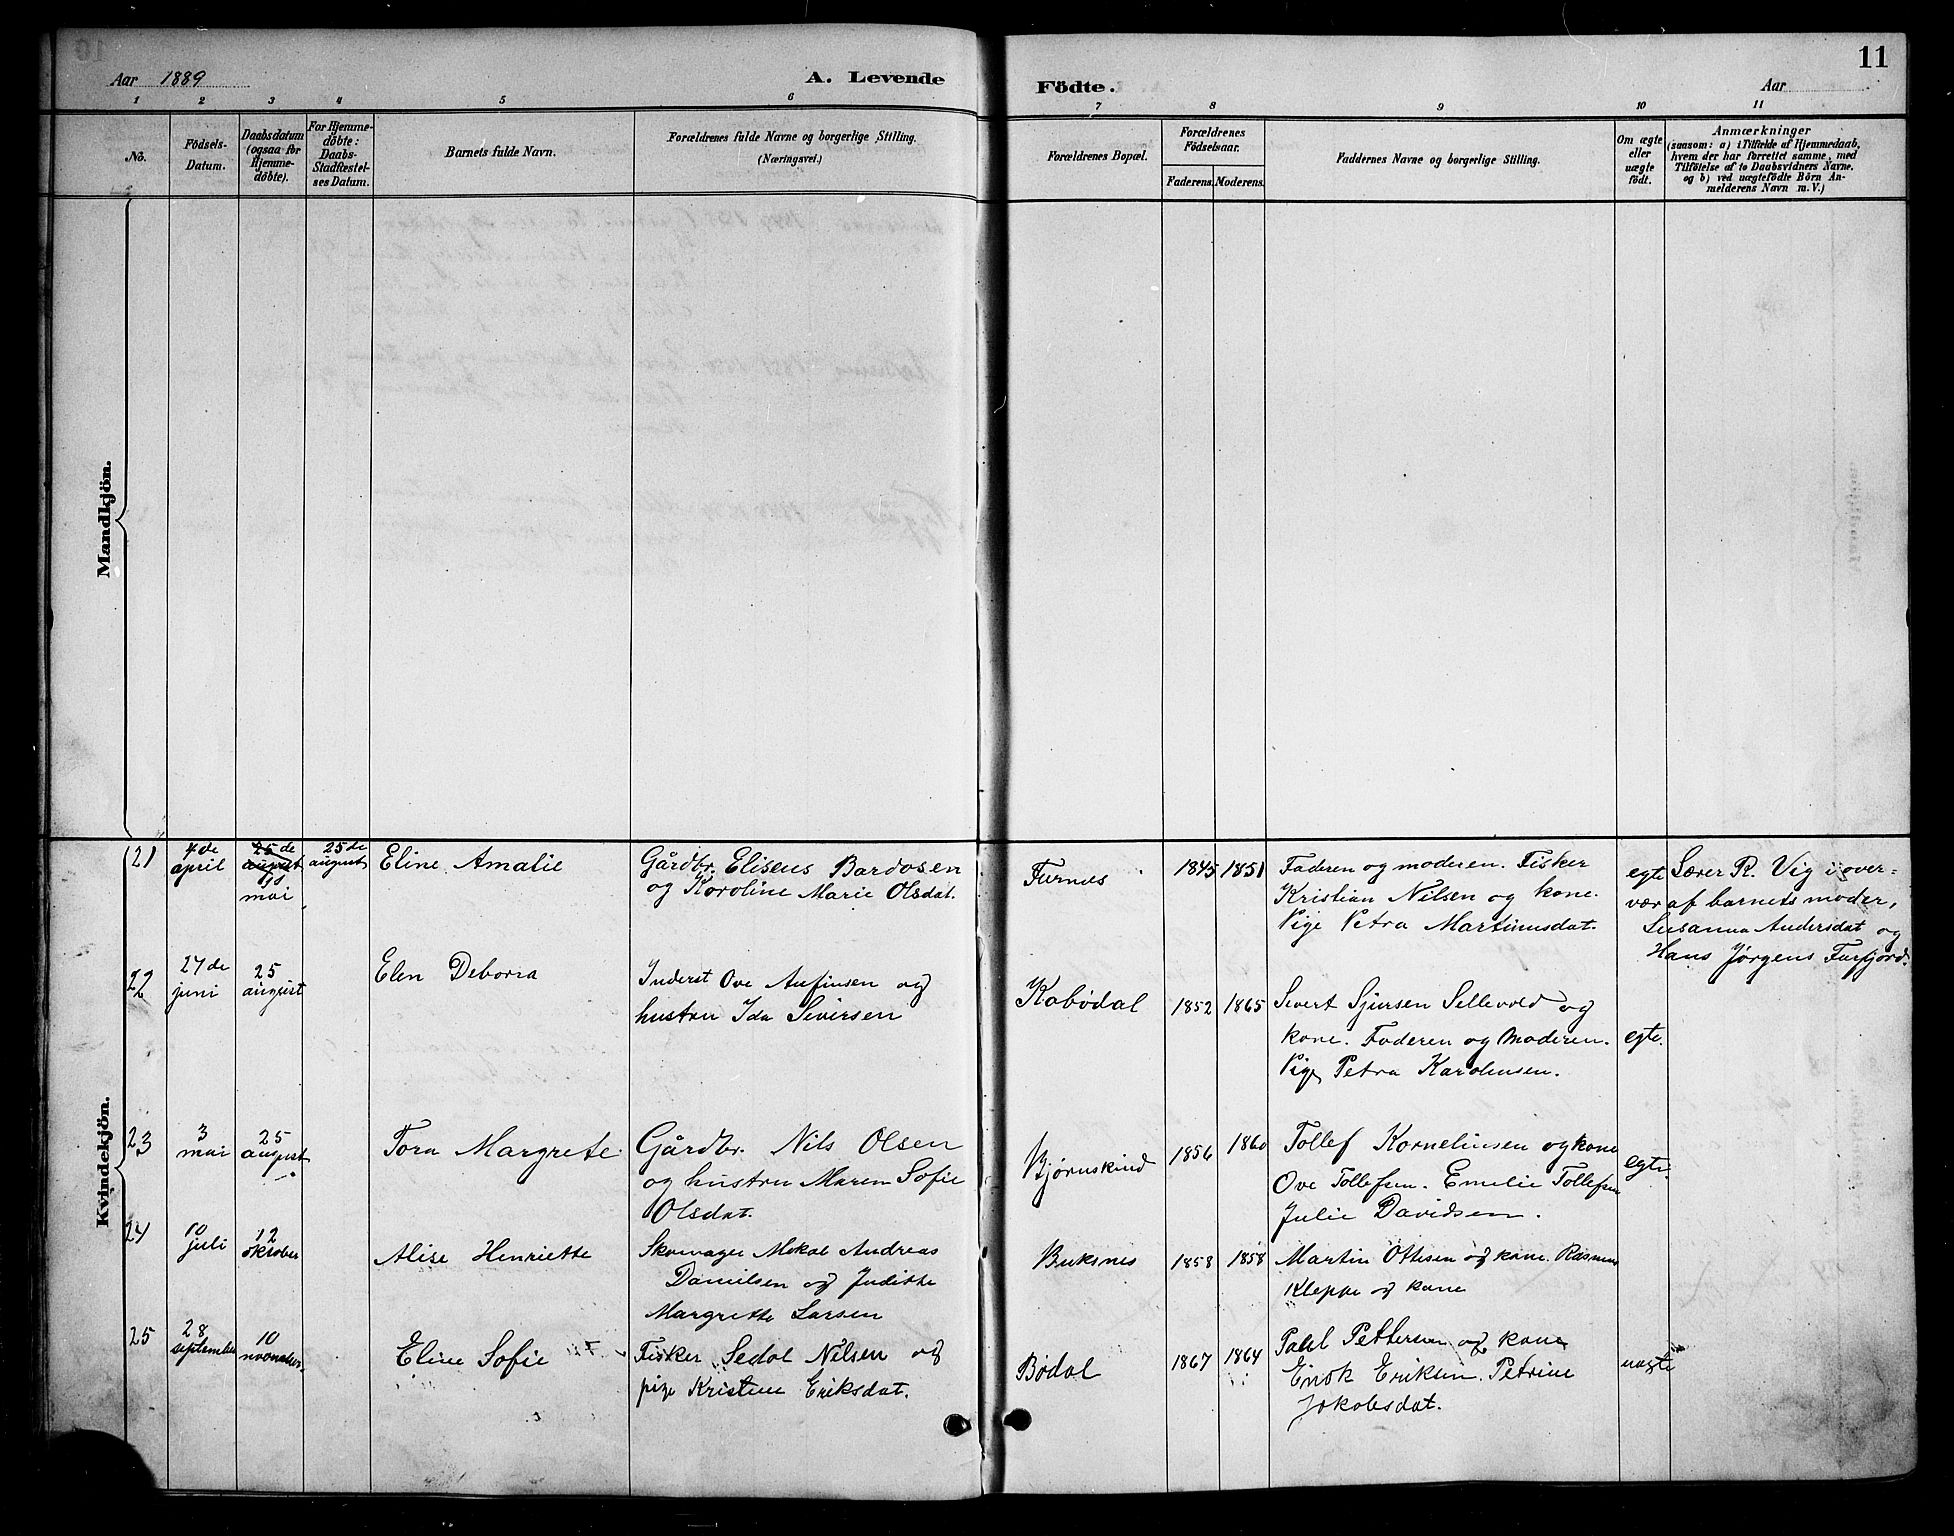 11
Aar 1889
A. Levende
Födte.
Aar
1 2 3 4 5 6 7 8 9 10 11
No.
Födsels-
Datum.
Daabsdatum
(ogsaa for
Hjemme-
döbte).
For Hjemme-
döbte:
Daabs-
Stadfæstel-
ses Datum.
Barnets fulde Navn.
Forældrenes fulde Navne og borgerlige Stilling.
(Næringsvei.)
Forældrenes Bopæl.
Forældrenes
Födselsaar.
Faderens. Moderens.
Faddernes Navne og borgerlige Stilling.
Om ægte
eller
uægte
födt.
Anmærkninger
(saasom: a) i Tilfælde af Hjemmedaab,
hvem der har forrettet samme, med
Tilföielse af to Daabsvidners Navne,
og b) ved uægtefödte Börn An-
melderens Navn m. V.)
Mandkjön.
Kvindekjön.
21
4de
april
25de
august
mai
25de
august
Eline Amalie
Gårdbr. Eliseus Bardosen
og Karoline Marie Olsdat.
Furnes
1845 1851
Faderen og moderen. Fisker
Kristian Nilsen og kone.
Pige Petra Martinusdat.
egte
Lærer R. Vig i over-
vær af barnets moder,
Susanna Andersdat og
Hans Jørgens Forfjord.
22
27de
juni
25
august
Elen Deborra
Inderst Ove Anfinsen og
hustru Ida Siversen
Kobødal
1852 1865
Sivert Sjursen Sellevold og
kone. Faderen og Moderen.
Pige Petra Karolinsen.
egte.
23
3
mai
25
august
Tora Margrete
Gårdbr. Nils Olsen
og hustru Maren Sofie
Olsdat.
Bjørnskind
1856 1860
Tollef Kornelinsen og kone
Ove Tollefsen. Emelie Tollefsen
Julie Davidsen.
egte.
24
10
juli
12
oktober
Alise Henriette
Skomager Mikal Andreas
Danielsen og Judithe
Margrethe Larsen
Buksnes
1858 1858
Martin Ottesen og kone. Rasmus
Kleppe og kone
25
28
september
10
november
Eline Sofie
Fisker Sedol Nilsen og
pige Kristine Eriksdat.
Bødal
1867 1864
Pahl Pettersen og kone
Enok Eriksen. Petrine
Jokobsdat.
uægte